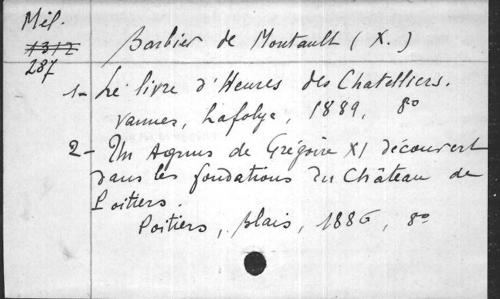 Mél.
1312
287
Barbier de Montault (X.)
1- Le livre d'Heures des Chatelliers.
Vannes, Lafolye, 1889, 8o
2- Un Agnus de Grégoire XI découvert
dans les fondations du Château de
Poitiers.
Poitiers, Blais, 1886, 8o